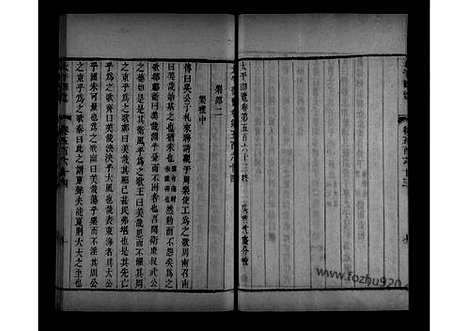 太平御覽卷第五百六十三
樂部二
雅樂中
來聘請觀于周樂使工爲之歌周南召南
曰美哉始基之也猶未也然勤而不怨矣爲之
歌邶鄘衛曰美哉淵乎憂而不困者也吾聞衛康叔武公
之德如是是其衛風乎爲之歌王曰美哉思而不懼其周
之東乎爲之歌鄭曰美哉其細已甚民弗堪也是其先亡
乎爲之歌齊曰美哉泱泱乎大風也哉表東海者其太公
乎國未可量也爲之歌豳曰美哉蕩乎樂而不淫其周公
之東乎爲之歌秦曰此之謂夏聲夫能夏則大大之至也
www.fozhu920.com